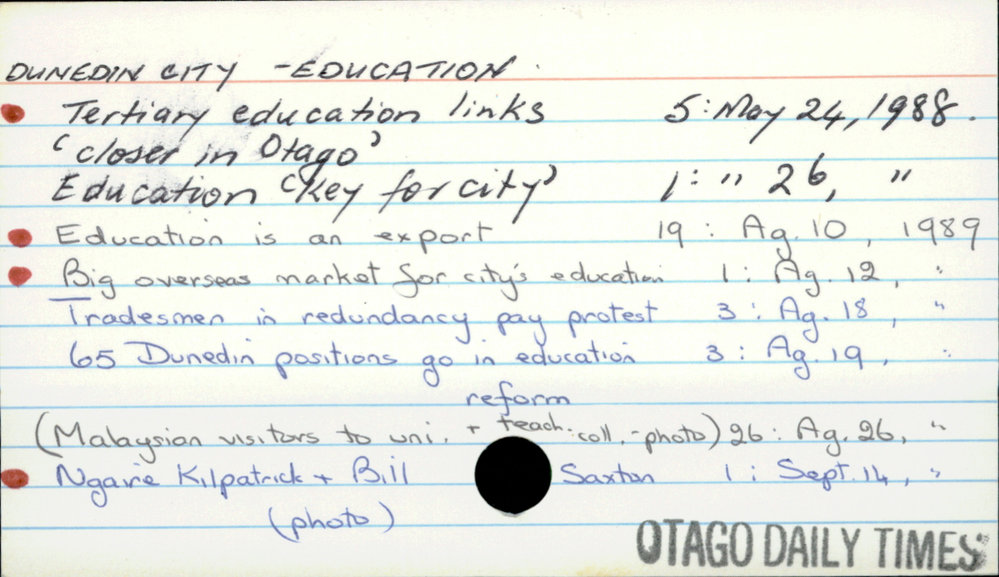 DUNEDIN CITY - EDUCATION
Tertiary education links 5: May 24, 1988.
'closer in Otago'
Education 'key for city' 1: " 26, "
Education is an export 19: Ag. 10, 1989
Big overseas market for city's education 1: Ag. 12, "
Tradesmen in redundancy pay protest 3: Ag. 18, "
65 Dunedin positions go in education 3: Ag. 19, "
reform
(Malaysian visitors to uni. + teach. coll. - photo) 26: Ag. 26, "
Ngaire Kilpatrick + Bill Saxton 1: Sept. 14, "
(photo)
OTAGO DAILY TIMES